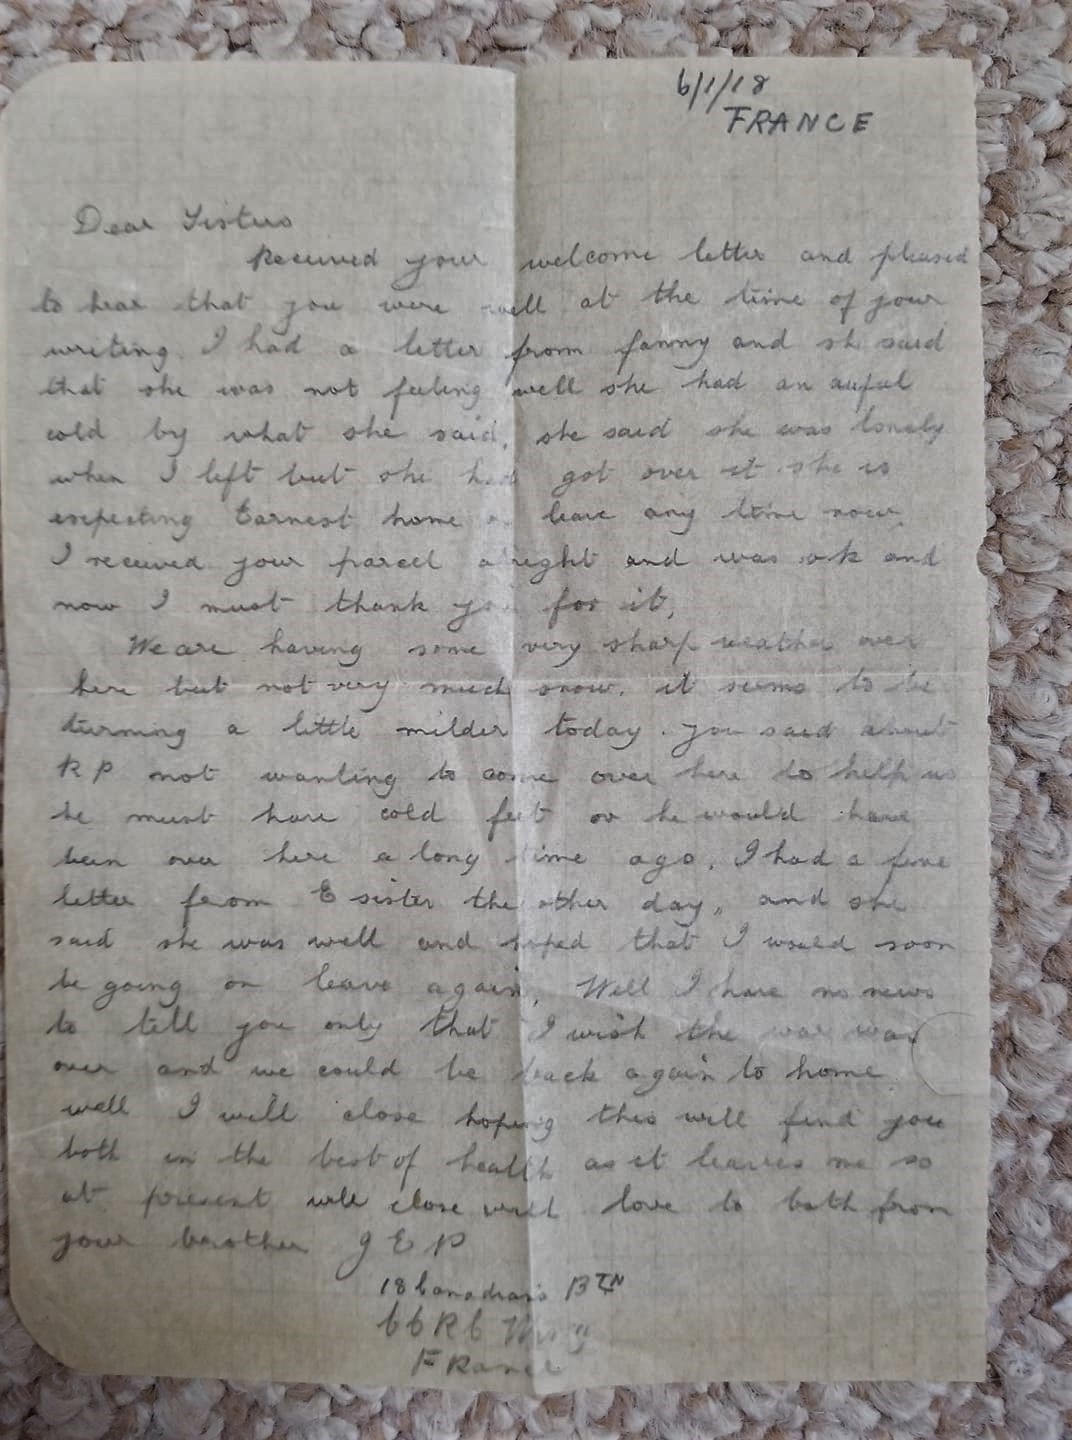 6/1/18
FRANCE
Dear Sisters
Received your welcome letter and pleased
to hear that you were well at the time of your
writing. I had a letter from fanny and sh said
that she was not feeling well she had an auful
cold by what she said, she said she was lonely
when I left but she has got over it she is
expecting Earnest home on leave any time now.
I received your parcel alright and was o.k and
now I must thank you for it,
We are having some very sharp weather over
here but not very much snow. it seems to be
turning a little milder today. you said about
R P not wanting to come over here to help us
he must have cold feet or he would have
been over here a long time ago. I had a fine
letter from E sister the other day, and she
said she was well and hoped that I would soon
be going on leave again. Well I have no news
to tell you only that I wish the war was
over and we could be back again to home
well I will close hoping this will find you
both in the best of health as it leaves me so
at present will close with love to both from
your brother J E P
18 Canadians BTN
France